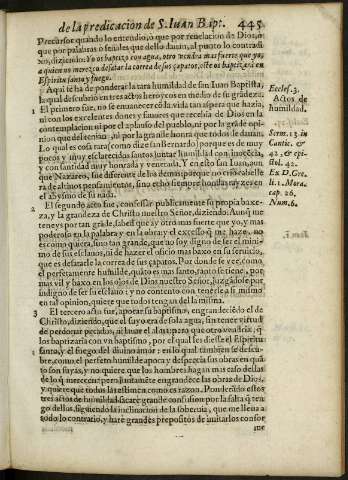 de la predicacion de S. Iuan Bapt. 445
Precursor quando lo entendio, o que por reuelacion de Dios, o
que por palabras o señales que dello dauan, al punto lo contradi-
xo, diziendo: Yo os baptizo con agua, otro vendra mas fuerte que yo,
a quien no merezco desatar la correa de sus çapatos, esse os baptizarà en
Espiritu santo y fuego.
Aqui se ha de ponderar la rara humildad de san Iuan Baptista,
la qual descubrio en tres actos heroycos en medio de su grãdeza.
1 El primero fue, no se enuanecer cõ la vida tan aspera que hazia,
ni con los excelentes dones y fauores que recebia de Dios en la
contemplacion: ni por el aplauso del pueblo, ni por la grãde opi-
nion que del tenian, ni por la grande honra que todos le dauan.
Lo qual es cosa rara (como dize san Bernardo) porque es de muy
pocos y muy esclarecidos santos juntar humildad con inocencia,
y con santidad muy honrada y venerada. Y en esto san Iuan, aun-
que Nazareo, fue diferente de los demas porque no crio cabello
ra de altiuos pensamientos, sino echò siempre hondas rayzes en
el abysmo de su nada.
2 El segundo acto fue, confessar publicamente su propia baxe-
za, y la grandeza de Christo nuestro Señor, diziendo: Aunq̃ me
teneys por tan grãde, sabed que ay otro mas fuerte que yo, y mas
poderoso en la palabra y en la obra: y el excesso q̃ me haze, no
es como quiera, sino tan grande, que no soy digno de ser el mini-
mo de sus esclauos, ni de hazer el oficio mas baxo en su seruicio,
que es desatarle la correa de sus çapatos. Por donde se vee, como
el perfetamente humilde, quãto es mas santo, tanto se tiene, por
mas vil y baxo en los ojos de Dios nuestro Señor, juzgãdose por
indigno de ser su esclauo: y no contento con tenerse a si mismo
en tal opinion, quiere que todos tengan de la misma.
3 El tercero acto fue, apocar su baptismo, engrandeciẽdo el de
Christo, diziendo, que el suyo era de sola agua, sin tener virtud
de perdonar pecados, ni lauar el alma: pero que otro vendria, q̃
los baptizaria con vn baptismo, por el qual se diesse el Espiritu
santo, y el fuego del diuino amor: en lo qual tambiẽ se descu-
bre, como el perfeto humilde apoca y desprecia sus obras en quã
to son suyas, y no quiere que los hombres hagan mas caso dellas
de lo q̃ merecen: pero juntamente engrandece las obras de Dios,
y quiere que todos las estimen como es razon. Ponderado estos
tres actos de humildad sacarè grande confusion por la falta q̃ ten-
go dellos, siguiẽdo la inclinacion de la soberuia, que me lleua a
todo lo contrario, y harè grandes propositos de imitarlos confor
me
Eccles. 3.
Actos de
humildad.
Serm. 13 in
Cantic. &
42. & epi-
stol. 42.
Ex D. Gre.
li. 1. Mora.
cap. 26.
Num. 6.